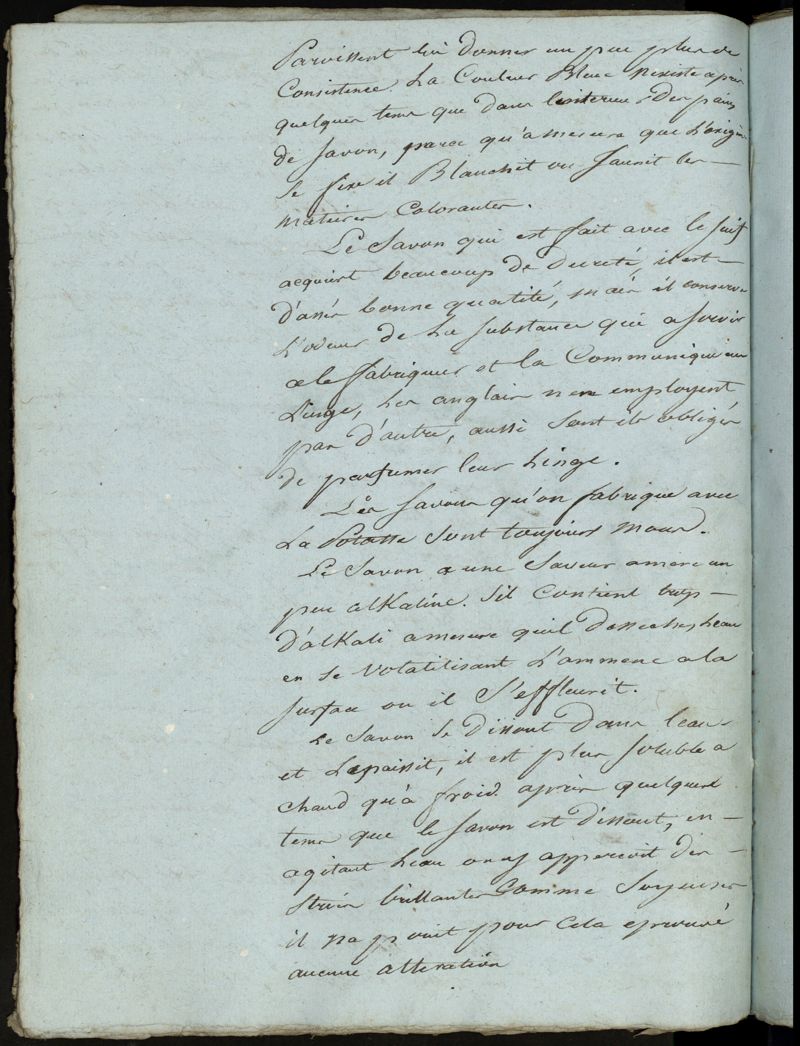 Paroissent lui donner un peu plus de
Consistence. La Couleur Bleue n'existe apres
quelques tems que dans linterieur des pains
de savon, parce qu'a mesure que L'oxigene
se fixe il Blanchit ou Jaunit les
matieres Colorantes.
Le Savon qui est fait avec le suif
acquiert beaucoup de dureté, il est
d'assés bonne qualité, mais il conserve
L'odeur de La substance qui a servie
a le fabriquer et la Communique au
Linge, Les anglais nen employent
pas d'autre, aussi sont ils obligés
de parfumer leur Linge.
Les savons qu'on fabrique avec
La Potasse sont toujours mous.
Le Savon a une Saveur amere un
peu alKaline. Sil Contient trop
d'alKali a mesure quil desseche, Leau
en se Volatilisant L'ammene a la
surface ou il S'effleurit.
Le Savon se Dissout dans leau
et Lepaissit, il est plus soluble a
chaud qu'à froid. après quelques
tems que le savon est dissout, en
agitant Leau on y appercoit des
stries brillantes Comme Soyeuses
il na point pour Cela eprouvé
aucune alteration